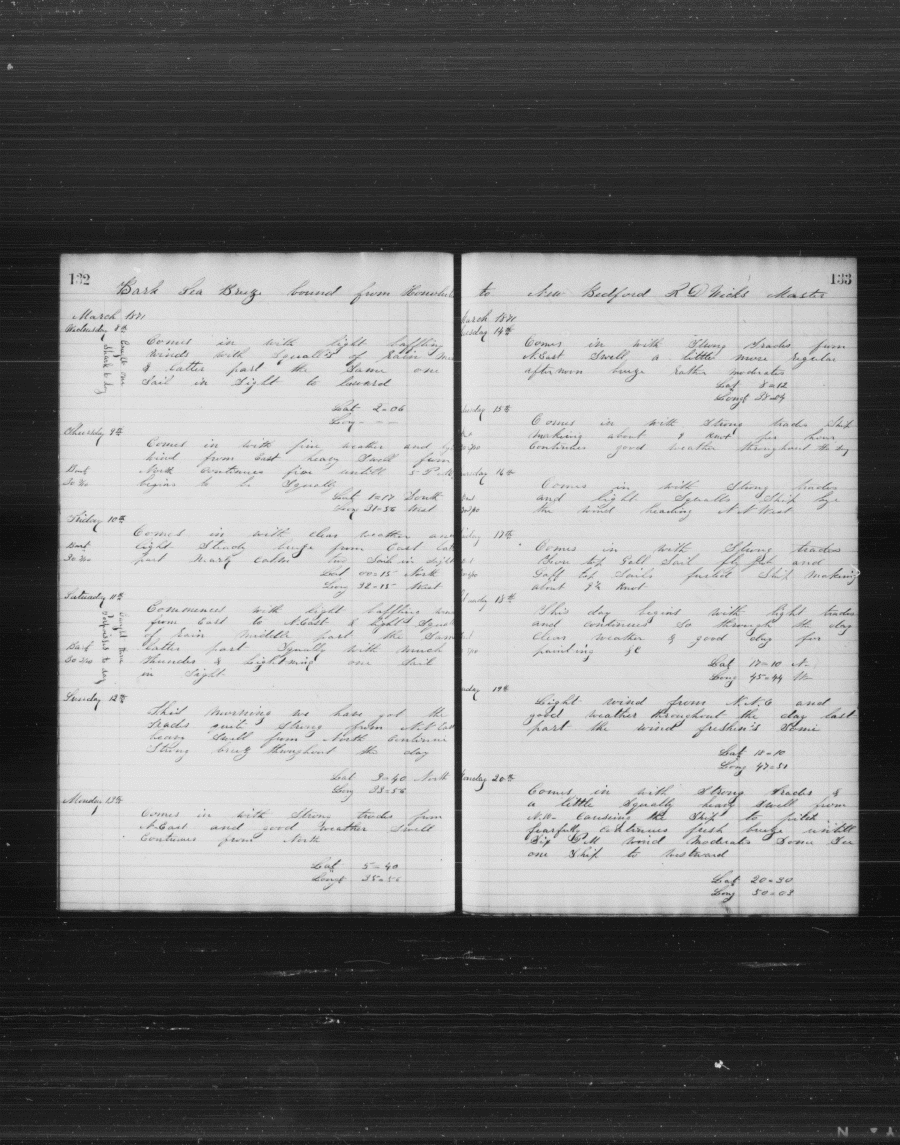 132
Bark Sea Breeze bound from Honolulu
March 1871
Wednesday 8th
Comes in with light baffling
winds with Squalls of Rain
& latter part the Same one
Sail in Sight to Leward
Lat 2=06
Long - -
Thursday 9th
Comes in with fine weather and
wind from East heavy Swell from
North Continues fine untill 5 P.M
begins to be Squally
Lat 1=017 South
Long 31=36 West
Friday 10th
Comes in with clear weather and
light Steady breeze from East
part nearly calm two Sail in Sight
Lat 00=15 North
Long 32=15 West
Saturday 11th
Commences with light baffling
from East to N.East & light
of Rain middle part the Same
latter part Squally with much
thunder & Lightning one Sail
in Sight
Sunday 12th
This morning we have got the
Trades quite Strong from N.E
heavy Swell from North Continues
Strong breeze throughout the day
Lat 3=40 North
Long 33=56
Monday 13th
Comes in with Strong trades from
N.East and good weather Swell
Continues from North
Lat 5=40
Longt 35=56
133
to New Bedford R D Wicks Master
March 1871
14th
Comes in with Strong Trades from
N.East Swell a little more regular
afternoon breeze rather moderates
Lat 8=12
Longt 38=24
15th
Comes in with Strong trades Ship
making about 9 knot per hour
Continues good weather throughout the day
16th
Comes in with Strong trades
and light Squalls Ship
the wind heading N.N West
17th
Comes in with Strong trades
top Gall Sail fly Jib and
Gaff top Sails furled Ship making
about 9½ knot
18th
This day begins with light trades
and continues So through the day
Clear weather & good day for
painting &c
Lat 17=10 N
Long 45=44 W
19th
Light wind from N.N.E and
good weather throughout the day last
part the wind freshen's Some
Lat 18=10
Long 47=51
20th
Comes in with Strong Trades &
a little Squally heavy Swell from
N.W Causeing the Ship to pitch
fearfully continues fresh breeze untill
Six P.M wind Moderates Some See
one Ship to westward
Lat 20=30
Long 50=03